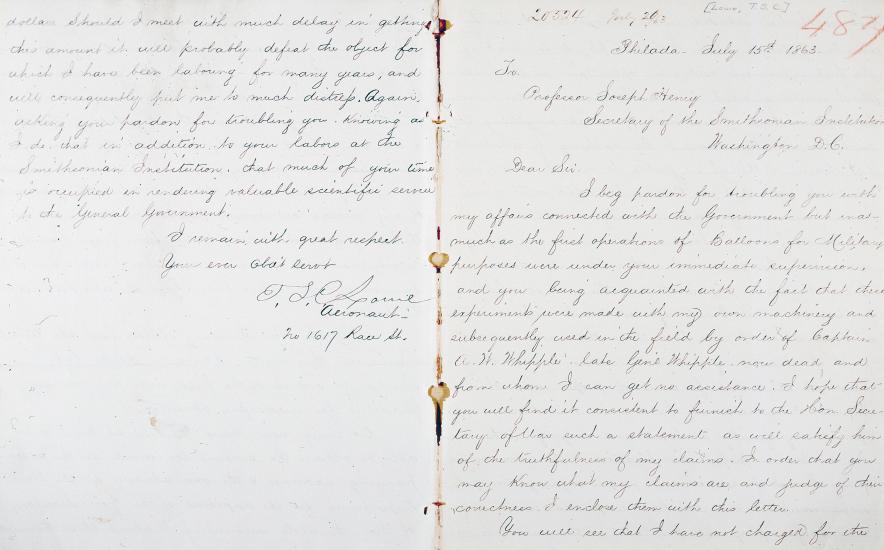 dollars Should I meet with much delay in getting
this amount it will probably defeat the object for
which I have been labouring for many years, and
will consequently put me to much distress. Again,
asking your pardon for troubling you. Knowing as
I do, that in addition to your labors at the
Smithsonian Institution, that much of your time
is occupied in rendering valuable scientific service
to the General Government.
I remain, with great respect.
Your ever Obdt Servt
T. S. C. Lowe
Aeronaut-
No 1617 Race St.
20524 July 20/63
[Lowe, T.S.C.]
487
Philada- July 15th 1863.
To.
Professor Joseph Henry
Secretary of the Smithsonian Institution
Washington D.C.
Dear Sir.
I beg pardon for troubling you with
my affairs connected with the Government but inas-
much as the first operations of Balloons for Military
purposes were under your immediate supervision,
and you being acquainted with the fact that these
experiments were made with my own machinery and
subsequently used in the field by order of Captain
A. W. Whipple late Genl Whipple now dead, and
from whom I can get no assistance. I hope that
you will find it consistent to furnish to the Hon. Secre-
tary of War such a statement as will satisfy him
of the truthfulness of my claims. In order that you
may know what my claims are and judge of their
corectness I enclose them with this letter.
You will see that I have not charged for the